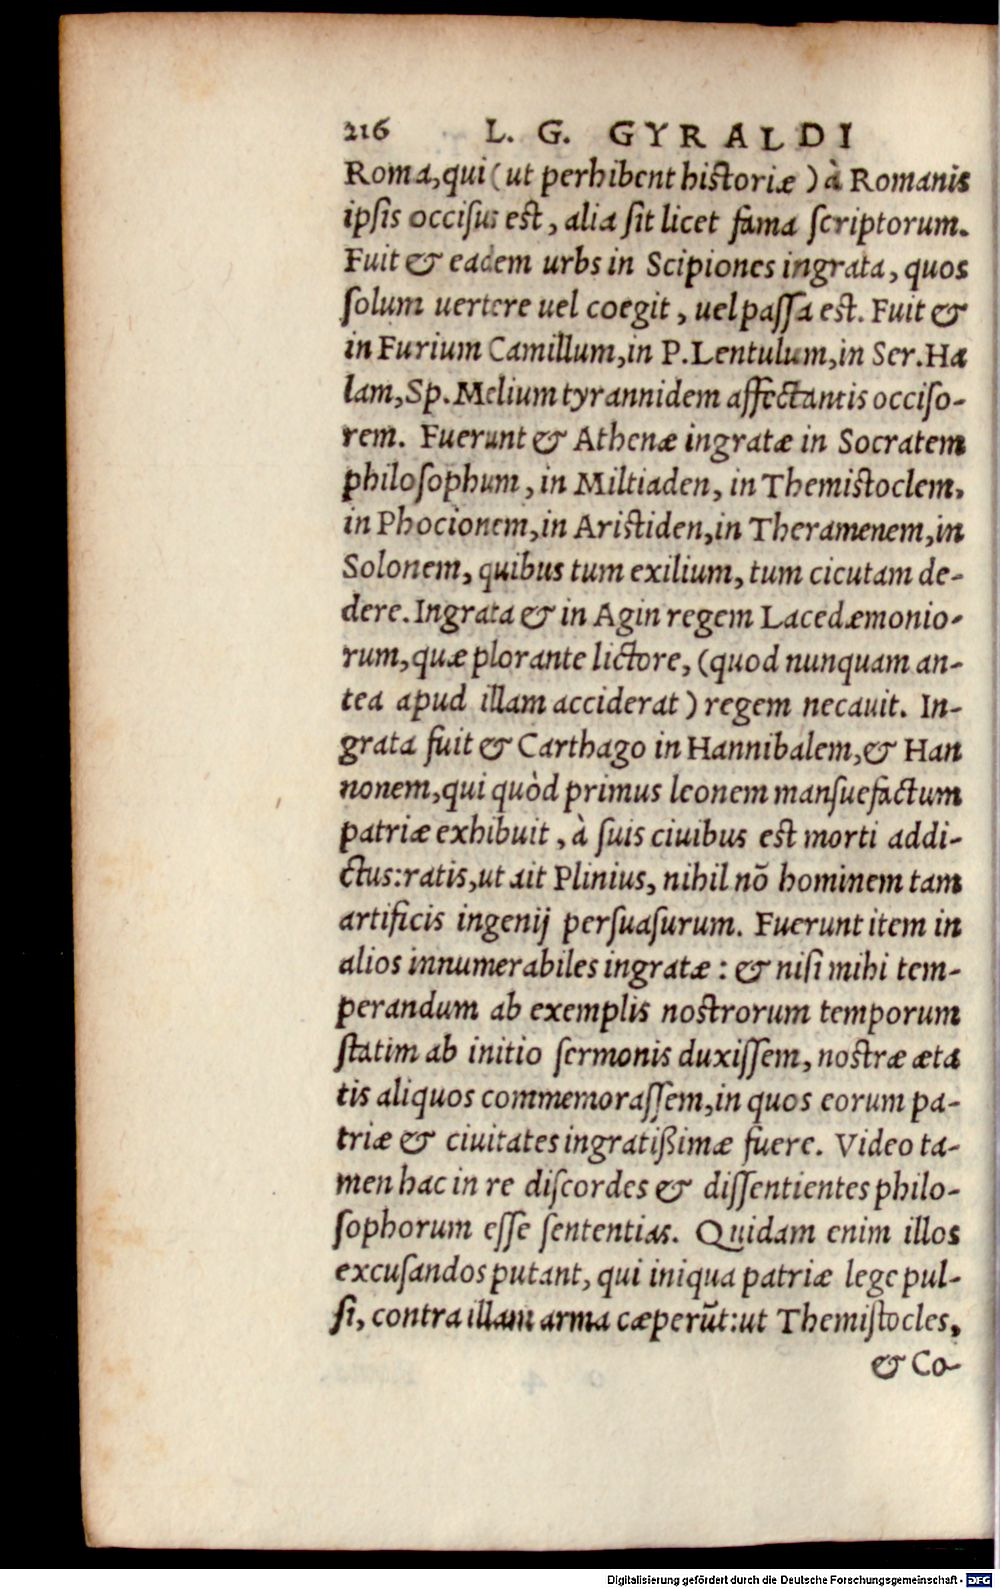 216 L. G. GYRALDI
Roma, qui (ut perhibent historiæ) à Romanis
ipſis occiſus est, alia ſit licet fama ſcriptorum.
Fuit & eadem urbs in Scipiones ingrata, quos
ſolum uertere uel coegit, uel paſſa est. Fuit &
in Furium Camillum, in P. Lentulum, in Ser. Ha
lam, Sp. Melium tyrannidem affectantis occiſo-
rem. Fuerunt & Athenæ ingratæ in Socratem
philoſophum, in Miltiaden, in Themistoclem,
in Phocionem, in Aristiden, in Theramenem, in
Solonem, quibus tum exilium, tum cicutam de-
dere. Ingrata & in Agin regem Lacedæmonio-
rum, quæ plorante lictore, (quod nunquam an-
tea apud illam acciderat) regem necauit. In-
grata fuit & Carthago in Hannibalem, & Han
nonem, qui quòd primus leonem manſuefactum
patriæ exhibuit, à ſuis ciuibus est morti addi-
ctus: ratis, ut ait Plinius, nihil nō hominem tam
artificis ingenij perſuaſurum. Fuerunt item in
alios innumerabiles ingratæ: & niſi mihi tem-
perandum ab exemplis nostrorum temporum
ſtatim ab initio ſermonis duxiſſem, nostræ æta
tis aliquos commemoraſſem, in quos eorum pa-
triæ & ciuitates ingratißimæ fuere. Video ta-
men hac in re diſcordes & diſſentientes philo-
ſophorum eſſe ſententias. Quidam enim illos
excuſandos putant, qui iniqua patriæ lege pul-
ſi, contra illam arma cæperūt: ut Themiſtocles,
& Co-
Digitalisierung gefördert durch die Deutsche Forschungsgemeinschaft - DFG